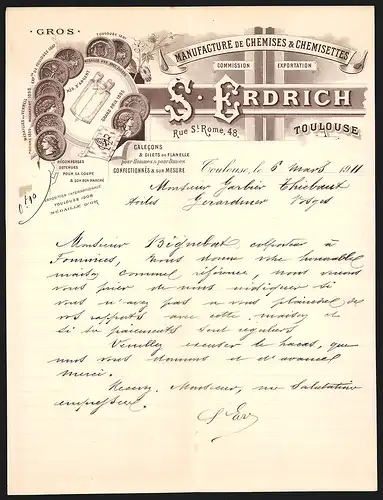 GROS
TOULOUSE 1881
MANUFACTURE DE CHEMISES & CHEMISETTES
COMMISSION EXPORTATION
S. ERDRICH
Rue St. Rome, 48,
TOULOUSE
CALEÇONS
& GILETS DE FLANELLE
pour Hommes & pour Dames
CONFECTIONNÉS & SUR MESURE
RÉCOMPENSES
OBTENUES
POUR SA COUPE
& SON BON MARCHÉ
EXPOSITION INTERNATIONALE
TOULOUSE 1908
MÉDAILLE D'OR
Toulouse, le 6 mars 1911
Monsieur Thiebaut
Gerardmer Vosges
Monsieur colporteur à
nous donne votre honorable
maison comme référence, nous venons
vous prier de nous indiquer si
vous n'avez pas a vous plaindre de
vos rapports avec cette maison et
si ses paiements sont reguliers
Veuillez excuser le tracas, que
nous vous donnons et d'avance
merci.
Recevez, Monsieur, nos Salutations
empressées.